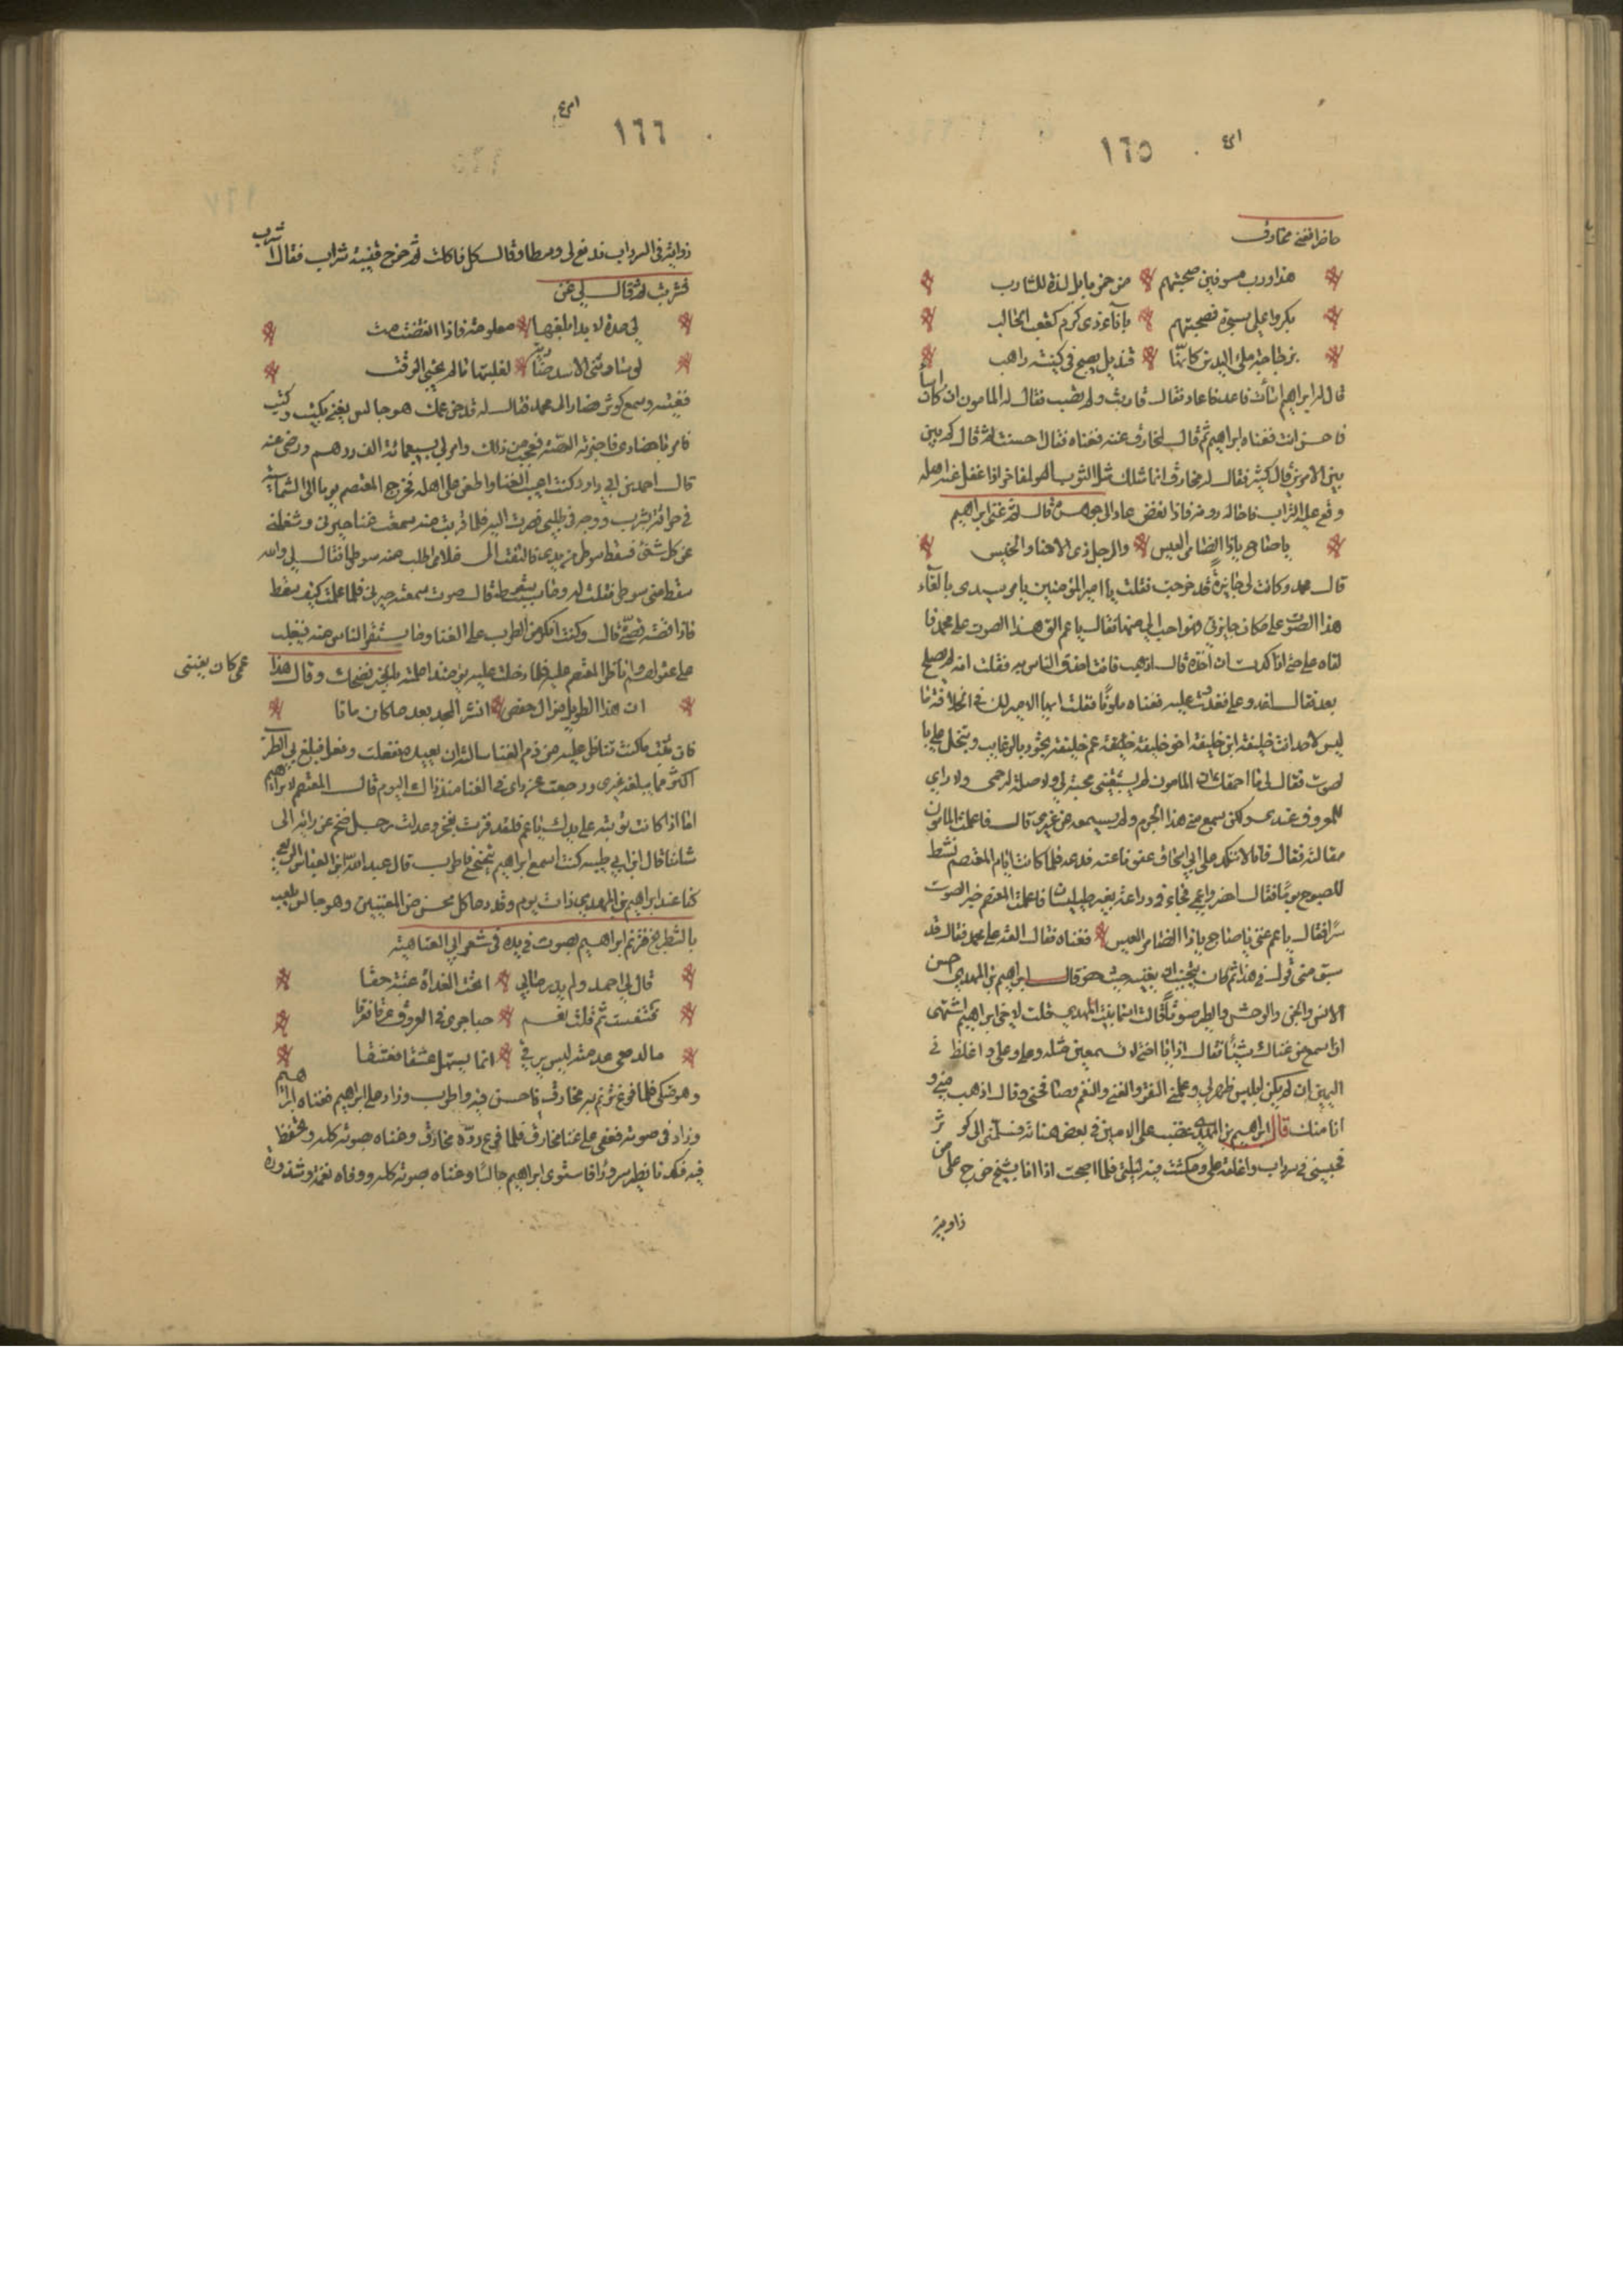 ١٦٥
حاضرا فغنى مخارق
هذا ورب مسوفين صبحتهم من خمر بابل لذة للشارب
بكروا علي بسحرة فصبحتهم باناء ذي كرم كقعب الحالب
بزجاجة ملء اليدين كانها قنديل صبح في كنيسة راهب
قال له ابراهيم اسأت فاعد فاعاد فقال قاربت ولم تصب فقال له المامون ان كان اساء
فاحسن انت فغناه ابراهيم ثم قال لمخارق غنه فغناه فقال احسنت ثم قال كم بين
بين الامرين قال كثير فقال له مخارق انما مثلك مثل الثوب الفاخر اذا غفل عنه اهله
وقع عليه التراب فاحال لونه فاذا نفض عاد الى جوهره ثم قال غنى ابراهيم
يا صاح يا ذا الضامر العيس والرحل ذي الاقتاد والحلس
قال محمد وكانت لي جايزة قد خرجت فقلت يا امير المومنين يامر سيدي بالقاء
هذا الصوت على مكان جايزتي فهو احب الي منها فقال يا عم الق هذا الصوت على محمد فا
لقاه علي حتى اذا كدت ان آخذه قال اذهب فانت احذق الناس به فقلت انه لم يصلح لي
بعد فقال فاغد علي فغدوت عليه فغناه ملويا فقلت ايها الامير لك في الخلافة ما
ليس لاحد انت خليفة ابن خليفة اخو خليفة عم خليفة تجود بالرغايب وتبخل علي با
لصوت فقال لي ما احمقك ان المامون لم يستبقني محبة لي ولا صلة لرحمي ولا
للمعروف عندي ولكن سمع من هذا الجرم ولم يسمعه من غيري قال فاعلمت المامون
مقالته فقال فانا لا نكدر على ابي اسحاق عفونا عنه فدعه فلما كانت ايام المعتصم نشط
للصبوح يوما فقال احضروا عمي فجاء في دراعة بغير طيلسان فاعلمت المعتصم خبر الصوت
سرا فقال يا عم غنني يا صاح يا ذا الضامر العيس فغناه فقال القه على محمد فقال قد
سبق مني قول في هذا ثم كان يتجنب ان يغنيه حيث حضر قال ابراهيم بن المهدي
الانس والجن والوحش والطير صوتا قالت اسما بنت المهدي قلت لاخي ابراهيم اشتهي
ان اسمع من غناك شيئا فقال اذا يا اختي لا تسمعين مثله وعلي وعلي واغلظ في
اليمين ان لم يكن ابليس ظهر لي وعلمني النقر والنغم وصافحني وقال اذهب فانت مني و
انا منك قال ابراهيم بن المهدي غضب علي الامين في بعض هناته فسلمني الى كوثر
فحبسني في سرداب واغلقه علي فمكثت فيه ليلتي فلما اصبحت اذا انا بشيخ خرج علي من
زاوية
١٦٦
زاوية في السرداب فدفع لي وسطا وقال كل فاكلت ثم اخرج قنينة شراب فقال اشرب
فشربت ثم قال لي غن
لي مدة لا بد ابلغها معلومة فاذا انقضت مت
لو ساورتني الاسد ضارية لغلبتها ما لم يجئ الوقت
فغنيته وسمع كوثر فصار الى محمد فقال له قد جن عمك هو جالس يغني بكيت وكيت
فامر باحضاري فاخبرته القصة فعجب من ذلك وامر لي بسبعمائة الف درهم ورضي عنه
قال احمد بن ابي داود كنت اعيب الغنا واطعن على اهله فخرج المعتصم يوما الى الشماسية
في حراقة يشرب ووجه في طلبي فصرت اليه فلما قربت منه سمعت غنا حيرني وشغلني
عن كل شئ فسقط سوطي من يدي فالتفت الى غلامي اطلب منه سوطه فقال لي والله
سقط مني سوطي فقلت له وما سبب سقوطه قال صوت سمعته حيرني فما علمت كيف سقط
فاذا قصته قصتي قال وكنت انكر امر الطرب على الغنا وما يستفز الناس منه فيغلب
على عقولهم واناظر المعتصم عليه فلما دخلت عليه يومئذ اعلمته بالخبر فضحك وقال هذا
عمي كان يغنيني
ان هذا الطويل من ال حفص انشر المجد بعد ما كان ماتا
فان تبت مما كنت تناظر عليه من ذم الغنا سالته ان يعيده ففعلت وفعل فبلغ بي الطرب
اكثر مما يبلغه غيري ورجعت عن رايي في الغنا منذ ذلك اليوم قال المعتصم لابراهيم
اما اذا كانت توبته على يديك يا عم فلقد فزت بفخر وعدلت رجل ضخم عن رايه الى
شاننا قال ابن ابي طيبه كنت اسمع ابراهيم يتنحنح فاطرب قال عبد الله بن العباس الربيعي
كنا عند ابراهيم بن المهدي ذات يوم وقد دعا كل محسن من المغنيين وهو جالس يلعب
بالشطرنج فترنم ابراهيم بصوت فريده في شعر ابي العتاهية
قال لي احمد ولم يدر ما بي اتحب الغداة عتبة حقا
فتنفست ثم قلت نعم حبا جرى في العروق عرقا فعرقا
ما لدمعي عدمته ليس يرقى انما يستهل عشقا فعشقا
وهو متكئ فلما فرغ ترنم به مخارق فاحسن فيه واطرب وزاد على ابراهيم فغناه ابراهيم
وزاد في صوته فعفى على غنا مخارق فلما فرغ رده مخارق وغناه بصوته كله وتحفظ
فيه فكدنا نطير سرورا فاستوى ابراهيم جالسا وغناه بصوته كله ووفاه نغمه وشذوره